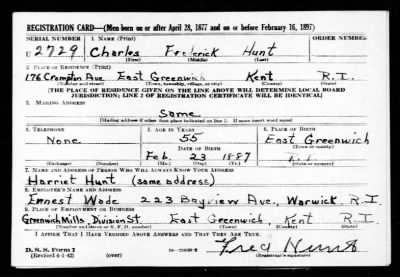 REGISTRATION CARD—(Men born on or after April 28, 1877 and on or before February 16, 1897)
SERIAL NUMBER 1. NAME (Print) ORDER NUMBER
U 2729 Charles Frederick Hunt
(First) (Middle) (Last)
2. PLACE OF RESIDENCE (Print)
176 Crompton Ave East Greenwich Kent R.I.
(Number and street) (Town, township, village, or city) (County) (State)
[THE PLACE OF RESIDENCE GIVEN ON THE LINE ABOVE WILL DETERMINE LOCAL BOARD
JURISDICTION; LINE 2 OF REGISTRATION CERTIFICATE WILL BE IDENTICAL]
3. MAILING ADDRESS
Same
(Mailing address if other than place indicated on line 2. If same insert word same)
4. TELEPHONE 5. AGE IN YEARS 6. PLACE OF BIRTH
None 55 East Greenwich
DATE OF BIRTH (Town or county)
Feb. 23 1887 R.I.
(Exchange) (Number) (Mo.) (Day) (Yr.) (State or country)
7. NAME AND ADDRESS OF PERSON WHO WILL ALWAYS KNOW YOUR ADDRESS
Harriet Hunt (same address)
8. EMPLOYER'S NAME AND ADDRESS
Ernest Wade 223 Bayview Ave., Warwick, R.I.
9. PLACE OF EMPLOYMENT OR BUSINESS
Greenwich Mills, Division St. East Greenwich, Kent R.I.
(Number and street or R. F. D. number) (Town) (County) (State)
I AFFIRM THAT I HAVE VERIFIED ABOVE ANSWERS AND THAT THEY ARE TRUE.
D. S. S. Form 1
(Revised 4-1-42) (over) 16—21630-2 Fred Hunt